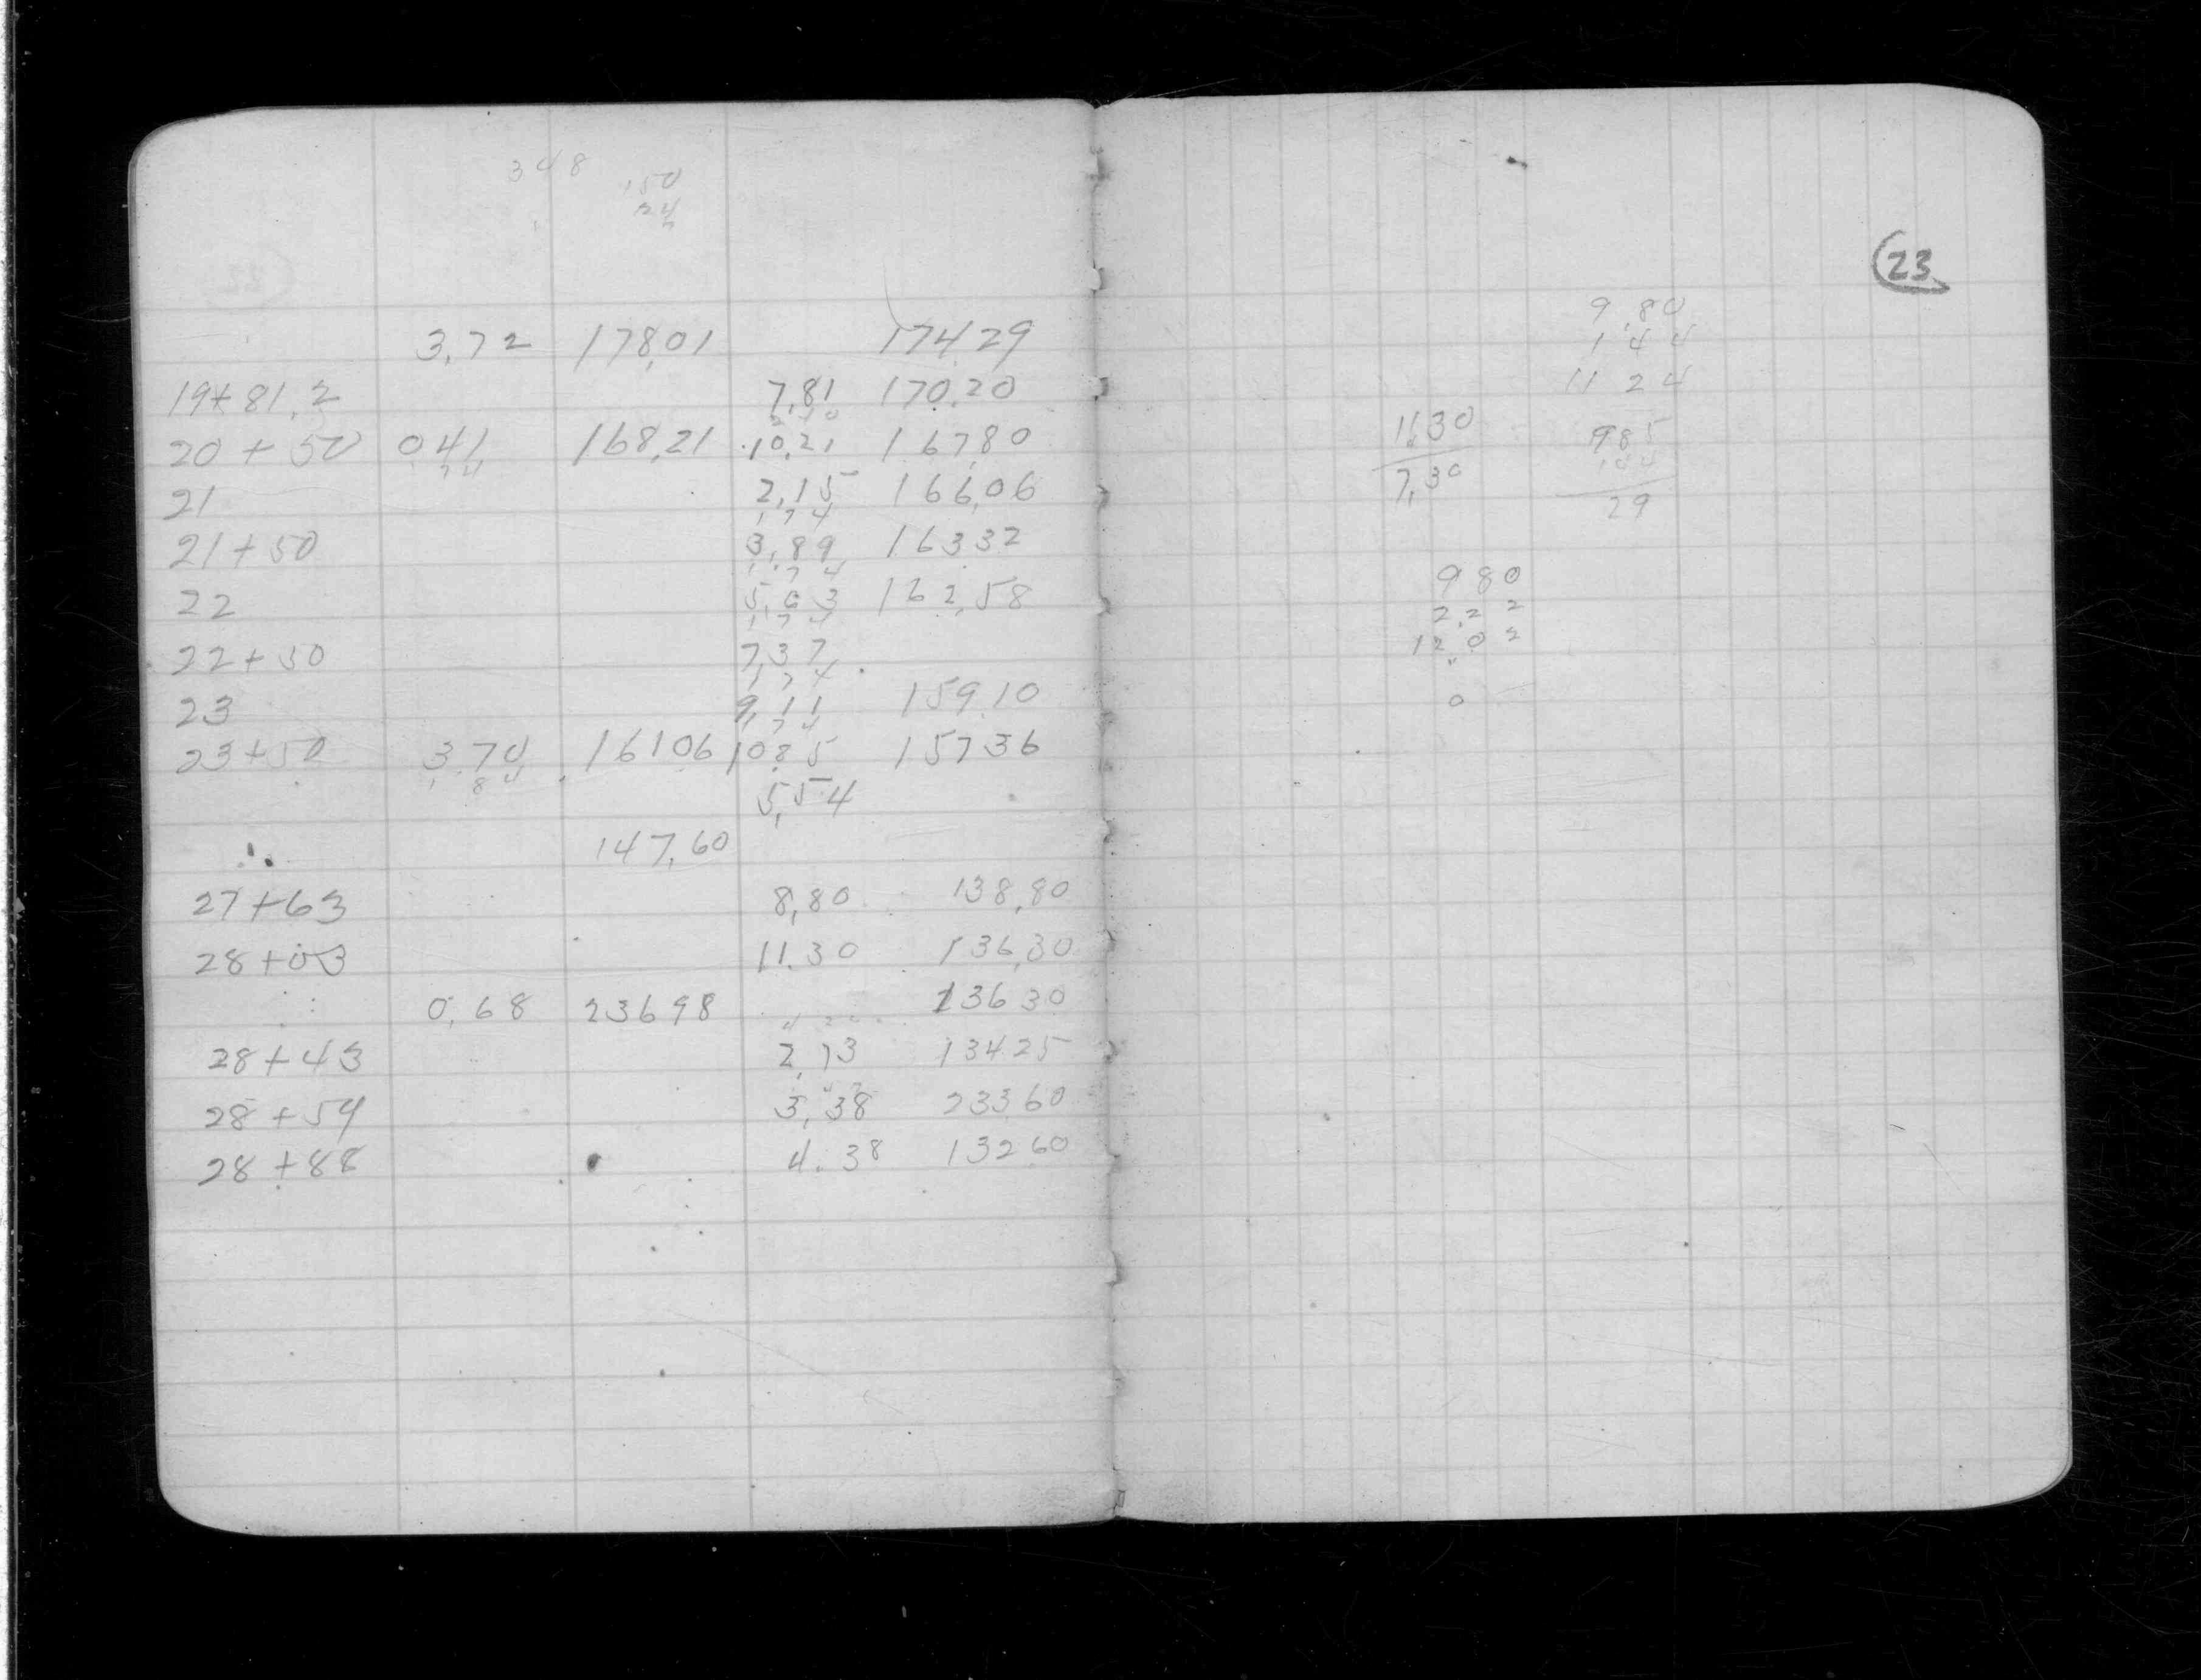 348
150
24
3.72 178.01 174.29
19+81.2 7.81 170.20
20+50 0.41 168.21 10.21 167.80
21 2.15 166.06
1 7 4
21+50 3.89 163.32
1 7 4
22 5.63 162.58
1 7 4
22+50 7.37
1 7 4
23 9.11 159.10
1 7 4
23+50 3.70 161.06 10.85 157.36
1 8 4 5.54
147.60
27+63 8.80 138.80
28+03 11.30 136.30
0.68 236 98 136 30
28+43 2.73 134.25
28+54 3.38 233 60
28+88 4.38 132 60
23
9.80
1 4 4
11 24
11.30
7.30
985
1 4 4
29
9 80
2.2 2
12 0 2
0